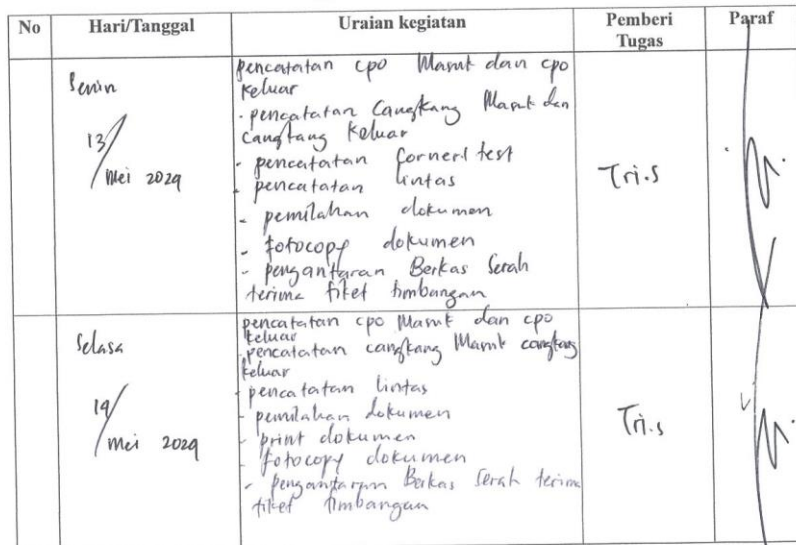 No Hari/Tanggal Uraian kegiatan Pemberi Tugas Paraf
Senin
13/
Mei 2024
pencatatan cpo Masuk dan cpo
keluar
- pencatatan Cangkang Masuk dan
Cangkang keluar
- pencatatan cornerl test
- pencatatan lintas
- pemilahan dokumen
- fotocopy dokumen
- pengantaran Berkas Serah
terima tiket timbangan
Tri.s
Selasa
14/
Mei 2024
pencatatan cpo Masuk dan cpo
keluar
- pencatatan cangkang Masuk cangkang
keluar
- pencatatan lintas
- pemilahan dokumen
- print dokumen
- fotocopy dokumen
- pengantaran Berkas Serah terima
tiket timbangan
Tri.s